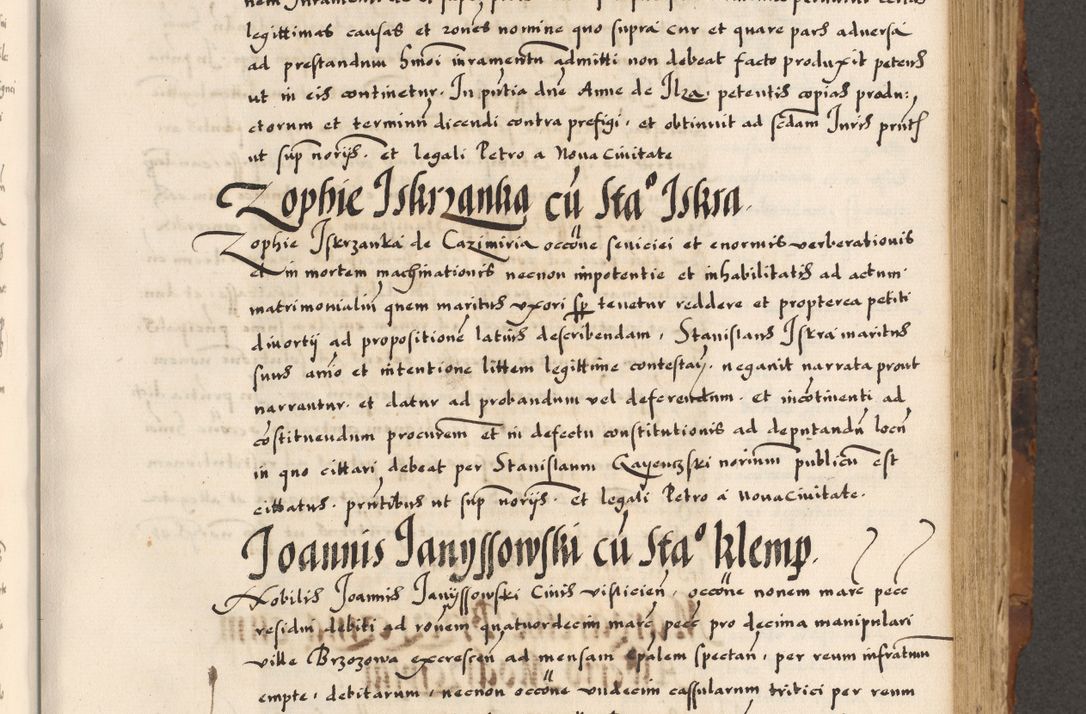 legittimas causas et rones nomine quo supra cur et quare pars adversa
ad prestandum hmoi iuramentu admitti non debeat facto produxit petens
ut in eis continetur. In pntia dne Anne de Ilza. petentis copias produ:
ctorum et terminu dicendi contra prefigi. et obtinuit ad scdam Juris pnt
ut sup norijs. et legali Petro a Nova Civitate
Zophie Iskrzanka cu Stao Iskra.
Zophie Iskrzanka de Cazimiria occone seviciei et enormis verberationis
et in mortem machinationis necnon impotentie et inhabilitatis ad actum
matrimonialiu quem maritus uxori tenetur reddere et propterea petiti
divortij ad propositione latius describendam, Stanislaus Iskra maritus
suus animo et intentione littem legittime contestan. negavit narrata prout
narrantur. et datur ad probandum vel deferendum. et incotinenti ad
costituendum procurem et in defectu constitutionis ad deputandu locu
in quo cittari debeat per Stanislaum Gayenczski norium publicu est
cittatus. pntibus ut sup norijs. et legali Petro a nova civitate.
Joannis Janyssowski cu Stao klemp.
Nobilis Joannis Janyssowski Civis vislicien, occone nonem marc pecc
residui debiti ad ronem quatuordecim marc pecc pro decima manipulari
ville Brzozowa excrescen ad mensam epalem spectan, per reum infratum
empte, debitarum, necnon occone undecim cassularum tritici per reum